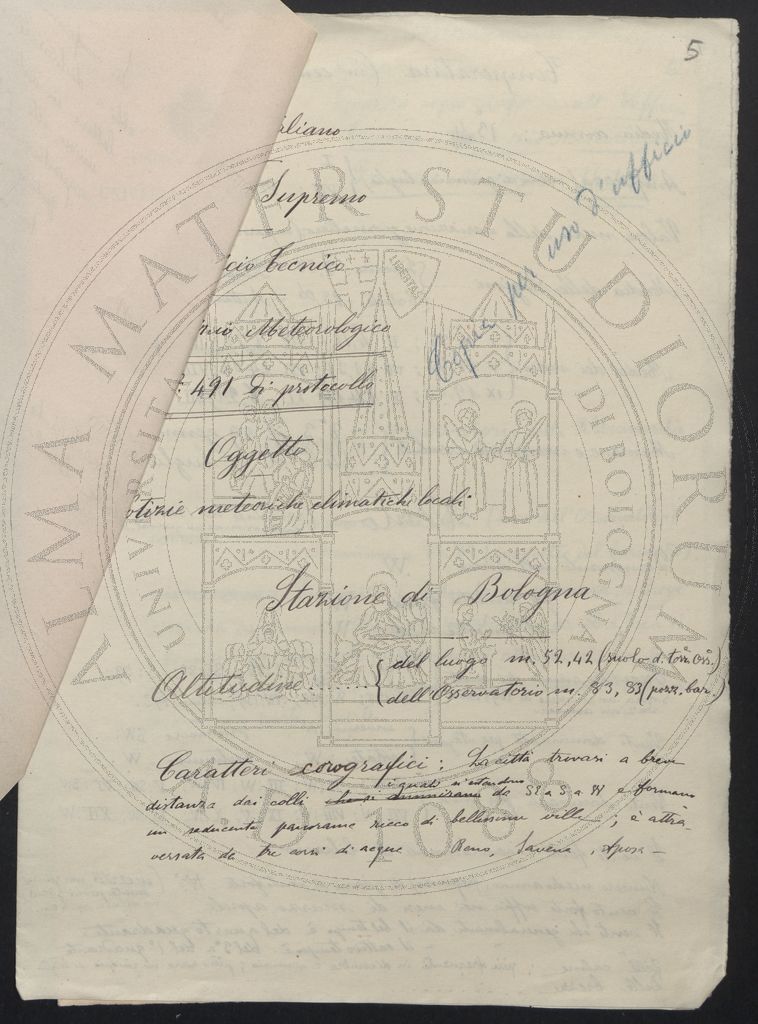 5
Copia per uso d'ufficio
Supremo
cio Tecnico
Meteorologico
491 di protocollo
Oggetto
otizie meteoriche climatiche locali
Stazione di Bologna
Altitudine ....... { del luogo m. 52,42 (suolo d. torr. oss.)
dell'Osservatorio m. 83,83 (pozz. bar.)
Caratteri corografici: La città trovasi a breve
i quali si estendono
distanza dai colli che si da SE a S a W e formano
un seducente panorama ricco di bellissime ville; è attra-
versata da tre corsi di acque Reno, Savena, Aposa —
ALMA MATER STUDIORUM
UNIVERSITA DI BOLOGNA
LIBERTAS
A.D. 1088